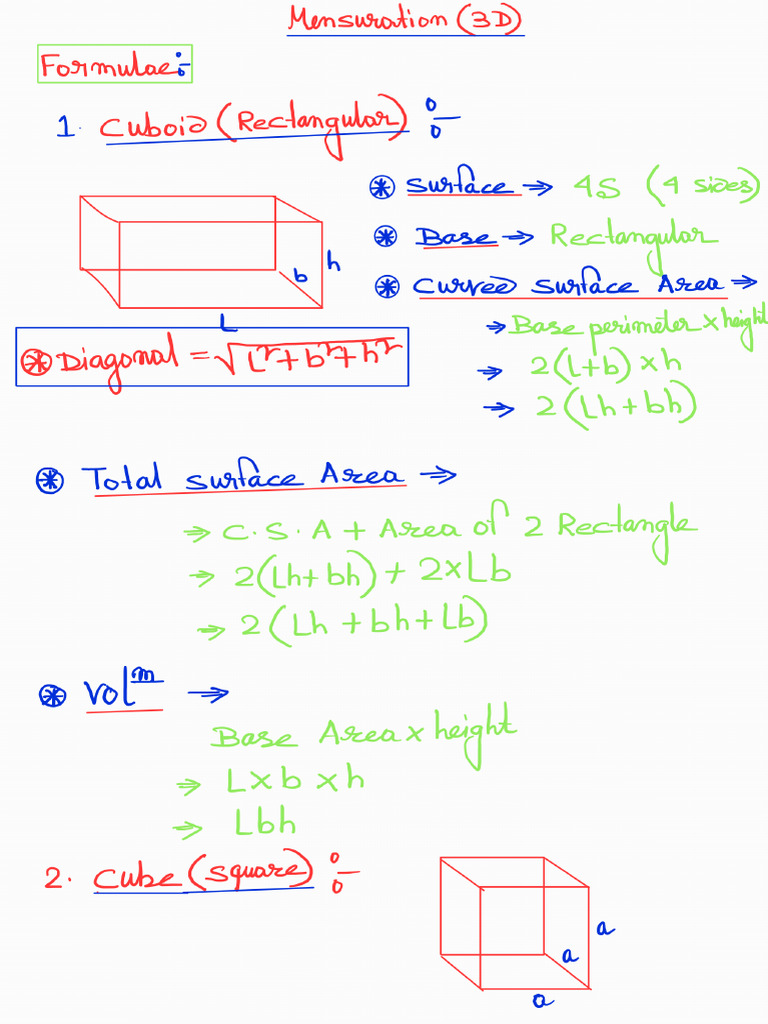 Mensuration (3D)
Formulae:-
1. Cuboid (Rectangular) :-
⊛ Surface → 4S (4 sides)
⊛ Base → Rectangular
⊛ Curved Surface Area →
→ Base perimeter × height
→ 2(L+b) × h
→ 2(Lh + bh)
h
b
L
⊛ Diagonal = √L²+b²+h²
⊛ Total surface Area →
→ C.S.A + Area of 2 Rectangle
→ 2(Lh+bh) + 2×Lb
→ 2(Lh + bh + Lb)
⊛ Volᵐ →
Base Area × height
→ L×b×h
→ Lbh
2. Cube (square) :-
a
a
a